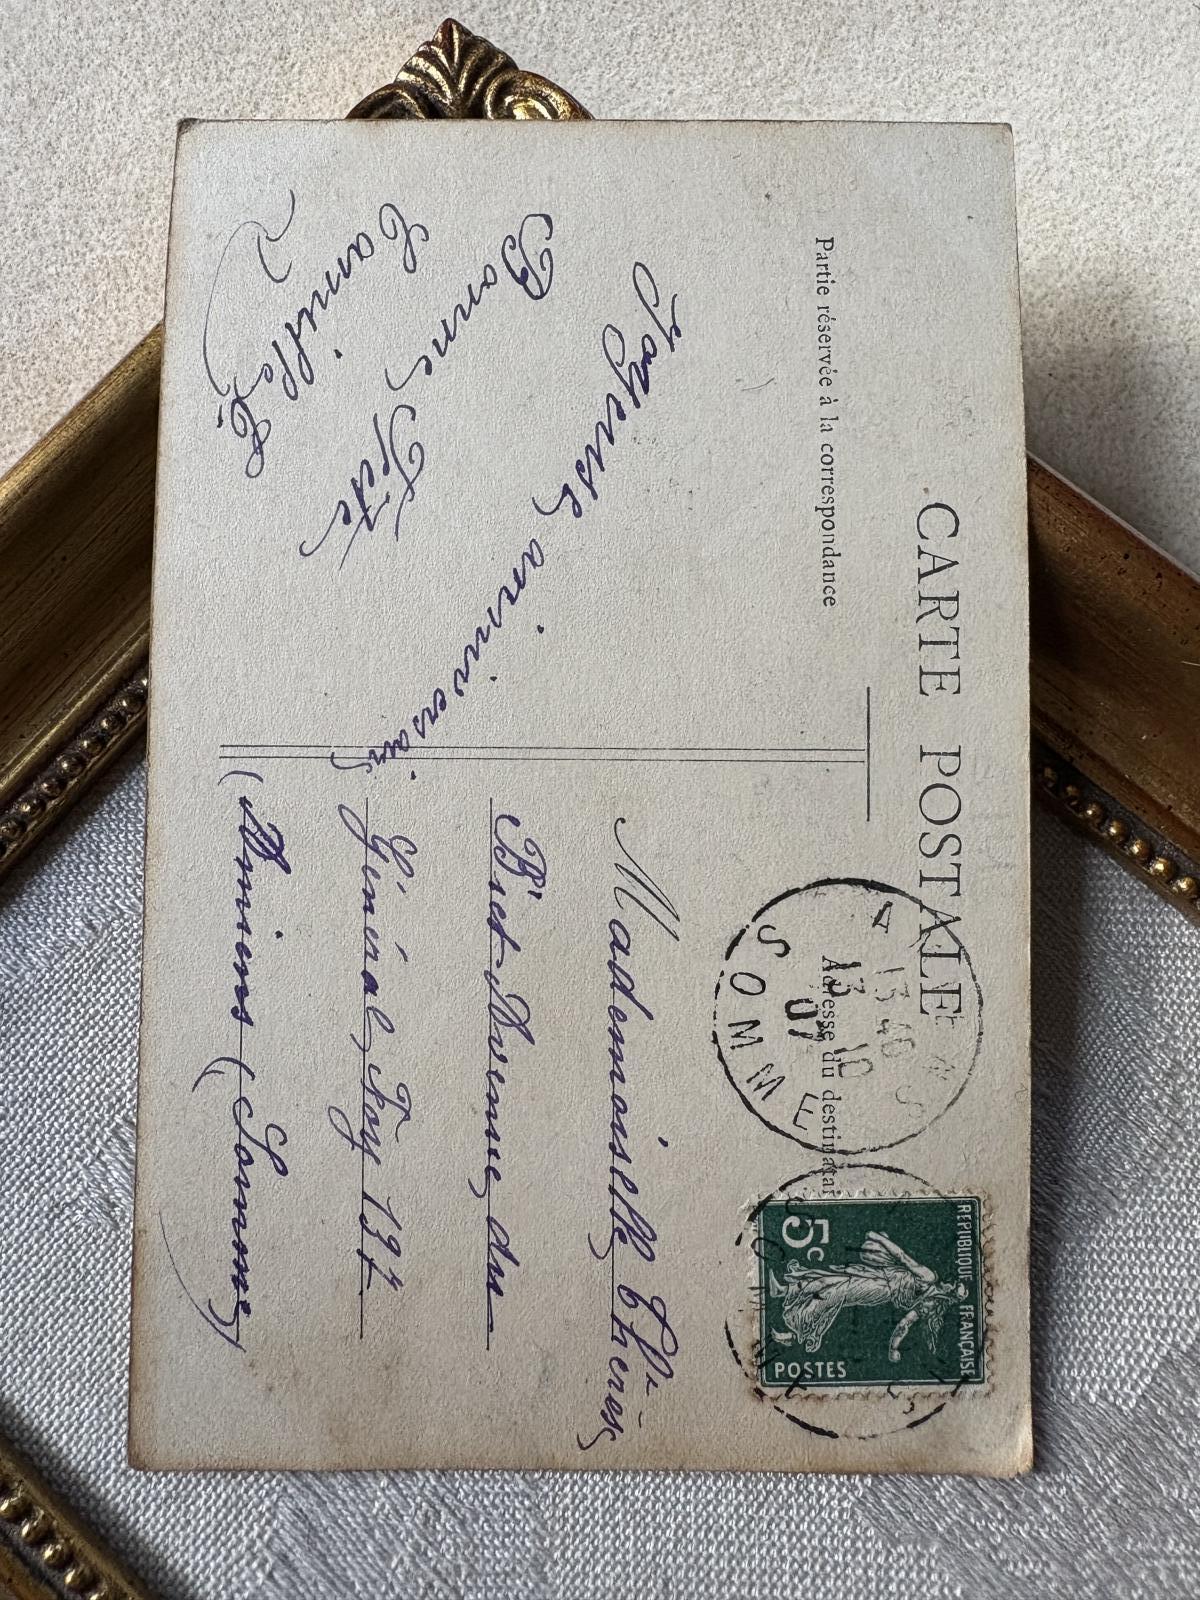 CARTE POSTALE
Partie réservée à la correspondance
Adresse du destinatai
Joyeuse anniversair
Bonne Fête
Camille C.
Mademoiselle Thérès
Biet Avenue du
Général Foy 137
(Amiens (Somme)
13 40
13 10
07
SOMME
REPUBLIQUE FRANÇAISE
5c
POSTES